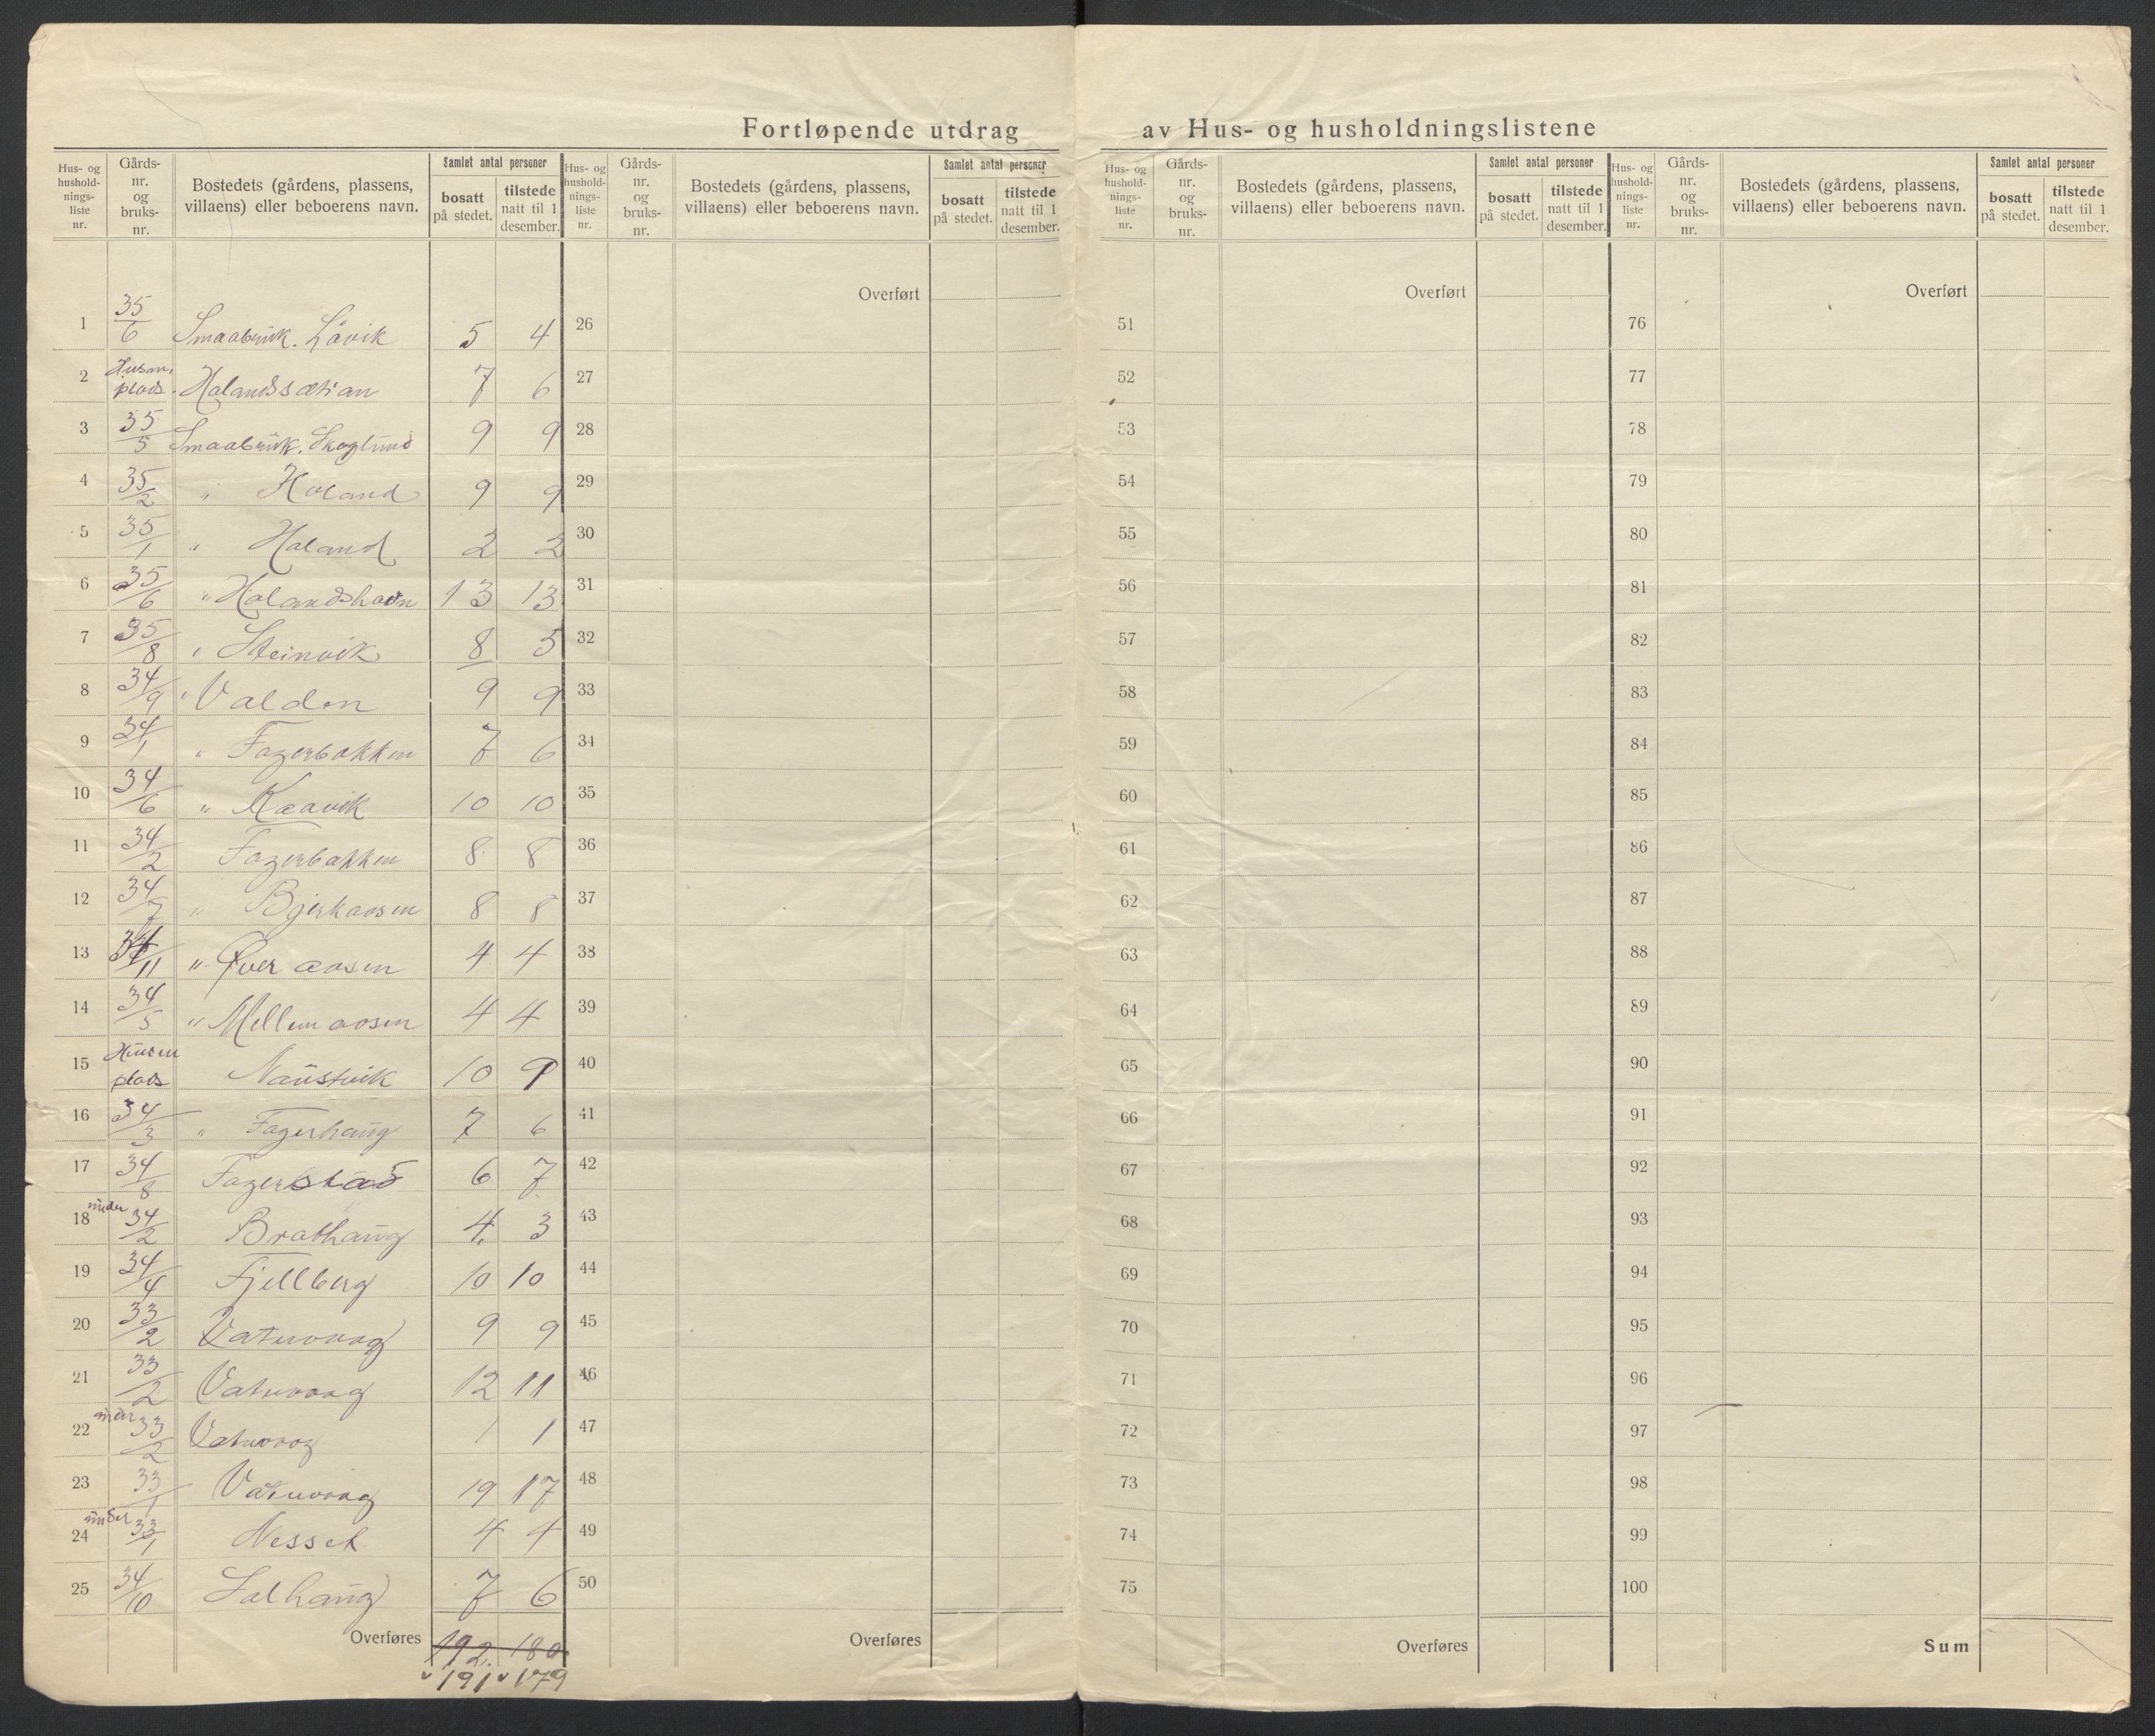 Fortløpende utdrag av Hus- og husholdningslistene
Hus- og hushold-nings-liste nr. Gårds-nr. og bruks-nr. Bostedets (gårdens, plassens, villaens) eller beboerens navn. Samlet antal personer bosatt på stedet. tilstede natt til 1 desember.
Hus- og hushold-nings-liste nr. Gårds-nr. og bruks-nr. Bostedets (gårdens, plassens, villaens) eller beboerens navn. Samlet antal personer bosatt på stedet. tilstede natt til 1 desember.
Hus- og hushold-nings-liste nr. Gårds-nr. og bruks-nr. Bostedets (gårdens, plassens, villaens) eller beboerens navn. Samlet antal personer bosatt på stedet. tilstede natt til 1 desember.
Hus- og hushold-nings-liste nr. Gårds-nr. og bruks-nr. Bostedets (gårdens, plassens, villaens) eller beboerens navn. Samlet antal personer bosatt på stedet. tilstede natt til 1 desember.
Overført Overført Overført
1 35/6 Smaabruk. Låvik 5 4 26 51 76
2 Husm. plads. Halandssætran 7 6 27 52 77
3 35/5 Smaabruk. Skoglund 9 9 28 53 78
4 35/2 " Haland 9 9 29 54 79
5 35/1 " Haland 2 2 30 55 80
6 35/6 " Halandshavn 13 13 31 56 81
7 35/8 " Steinvik 8 5 32 57 82
8 34/9 " Valden 9 9 33 58 83
9 34/1 " Fagerbakken 7 6 34 59 84
10 34/6 " Kaavik 10 10 35 60 85
11 34/2 Fagerbakken 8 8 36 61 86
12 34/7 " Bjerkaasen 8 8 37 62 87
13 34/11 " Øver aasen 4 4 38 63 88
14 34/5 " Mellem aasen 4 4 39 64 89
15 Husm plads Naustvik 10 9 40 65 90
16 34/3 " Fagerhaug 7 6 41 66 91
17 34/8 Fagerstad 6 7 42 67 92
18 under 34/2 Brathaug 4. 3 43 68 93
19 34/4 Fjellberg 10 10 44 69 94
20 33/2 Vatnvaag 9 9 45 70 95
21 33/2 Vatnvaag 12 11 46 71 96
22 under 33/2 Vatnvaag 1 1 47 72 97
23 33/1 Vatnvaag 19 17 48 73 98
24 under 33/1 Nesset 4 4 49 74 99
25 34/10 Salhaug 7 6 50 75 100
Overføres 192. 180 Overføres Overføres Sum
" 191 " 179